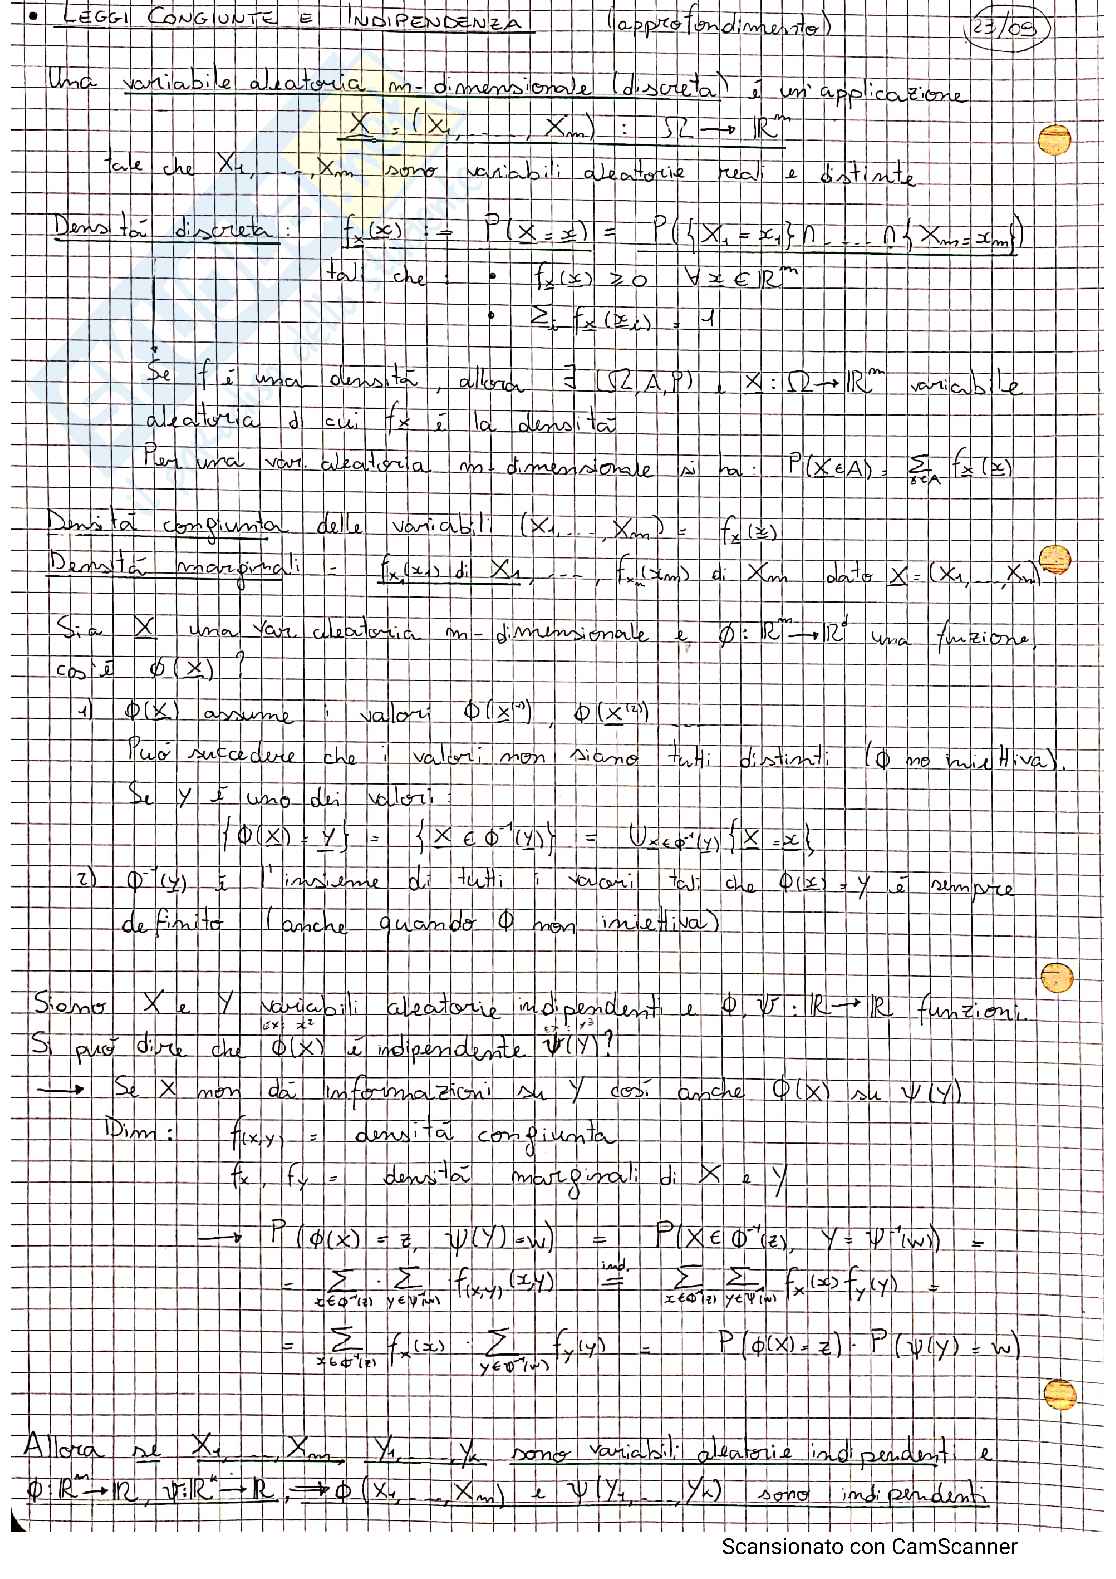 • LEGGI CONGIUNTE E INDIPENDENZA (approfondimento) 23/09
Una variabile aleatoria m-dimensionale (discreta) è un'applicazione
X = (X₁, ..., Xm) : Ω → ℝᵐ
tale che X₁, ..., Xm sono variabili aleatorie reali e distinte
Densità discreta : fx(x) := P(X = x) = P({X₁ = x₁} ∩ ... ∩ {Xm = xm})
tali che : • fx(x) ≥ 0 ∀x ∈ ℝᵐ
• Σi fx(xi) = 1
Se f è una densità, allora ∃ (Ω, A, P), X : Ω → ℝᵐ variabile
aleatoria di cui fx è la densità
Per una var. aleatoria m-dimensionale si ha : P(X ∈ A) = Σx∈A fx(x)
Densità congiunta delle variabili (X₁, ..., Xm) = fx(x)
Densità marginali = fx₁(x₁) di X₁, ..., fxm(xm) di Xm dato X = (X₁, ..., Xm)
Sia X una var. aleatoria m-dimensionale e ϕ : ℝᵐ → ℝᵈ una funzione,
cos'è ϕ(X) ?
1) ϕ(X) assume i valori ϕ(X⁽¹⁾), ϕ(X⁽²⁾) ...
Può succedere che i valori non siano tutti distinti (ϕ no iniettiva).
Se y è uno dei valori :
{ϕ(X) = y} = {X ∈ ϕ⁻¹(y)} = ∪x∈ϕ⁻¹(y) {X = x}
2) ϕ⁻¹(y) è l'insieme di tutti i valori tali che ϕ(x) = y è sempre
definito (anche quando ϕ non iniettiva)
Siano X e Y variabili aleatorie indipendenti e ϕ, ψ : ℝ → ℝ funzioni.
Si può dire che ϕ(X) è indipendente ψ(Y)?
→ Se X non dà informazioni su Y così anche ϕ(X) su ψ(Y)
Dim : f(x,y) = densità congiunta
fx, fy = densità marginali di X e Y
→ P(ϕ(X) = z, ψ(Y) = w) = P(X ∈ ϕ⁻¹(z), Y = ψ⁻¹(w)) =
= Σx∈ϕ⁻¹(z) · Σy∈ψ⁻¹(w) f(x,y)(x,y) =ind. Σx∈ϕ⁻¹(z) Σy∈ψ⁻¹(w) fx(x) fy(y) =
= Σx∈ϕ⁻¹(z) fx(x) · Σy∈ψ⁻¹(w) fy(y) = P(ϕ(X) = z) · P(ψ(Y) = w)
Allora se X₁, ..., Xm, Y₁, ..., Yk sono variabili aleatorie indipendenti e
ϕ : ℝᵐ → ℝ, ψ : ℝᵏ → ℝ, ⟹ ϕ(X₁, ..., Xm) e ψ(Y₁, ..., Yk) sono indipendenti
Scansionato con CamScanner